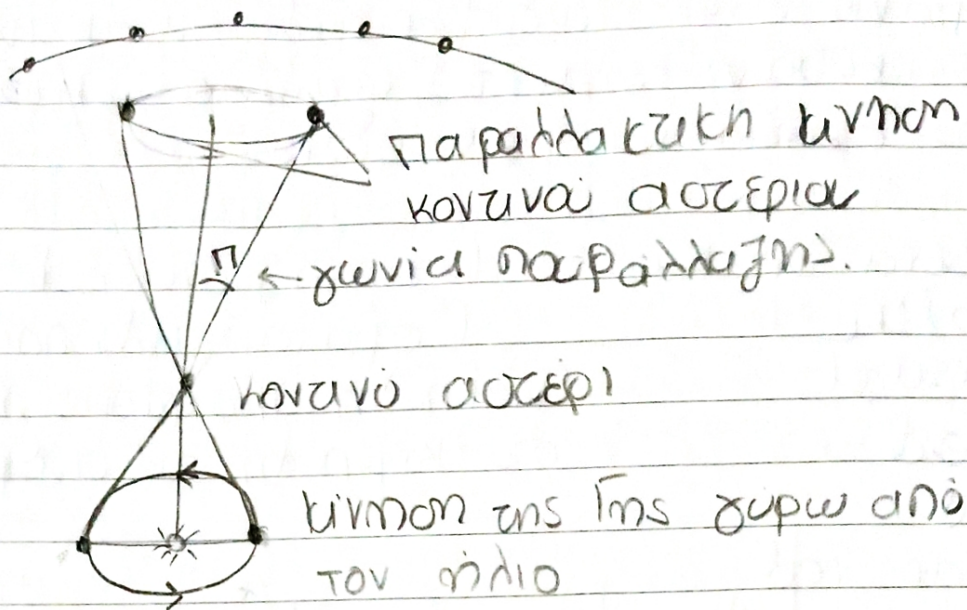 παραλλακτικη κινηση
κοντινού αστεριού
π
← γωνία παράλλαξης.
κοντινό αστέρι
κίνηση της Γης γύρω από
τον ήλιο